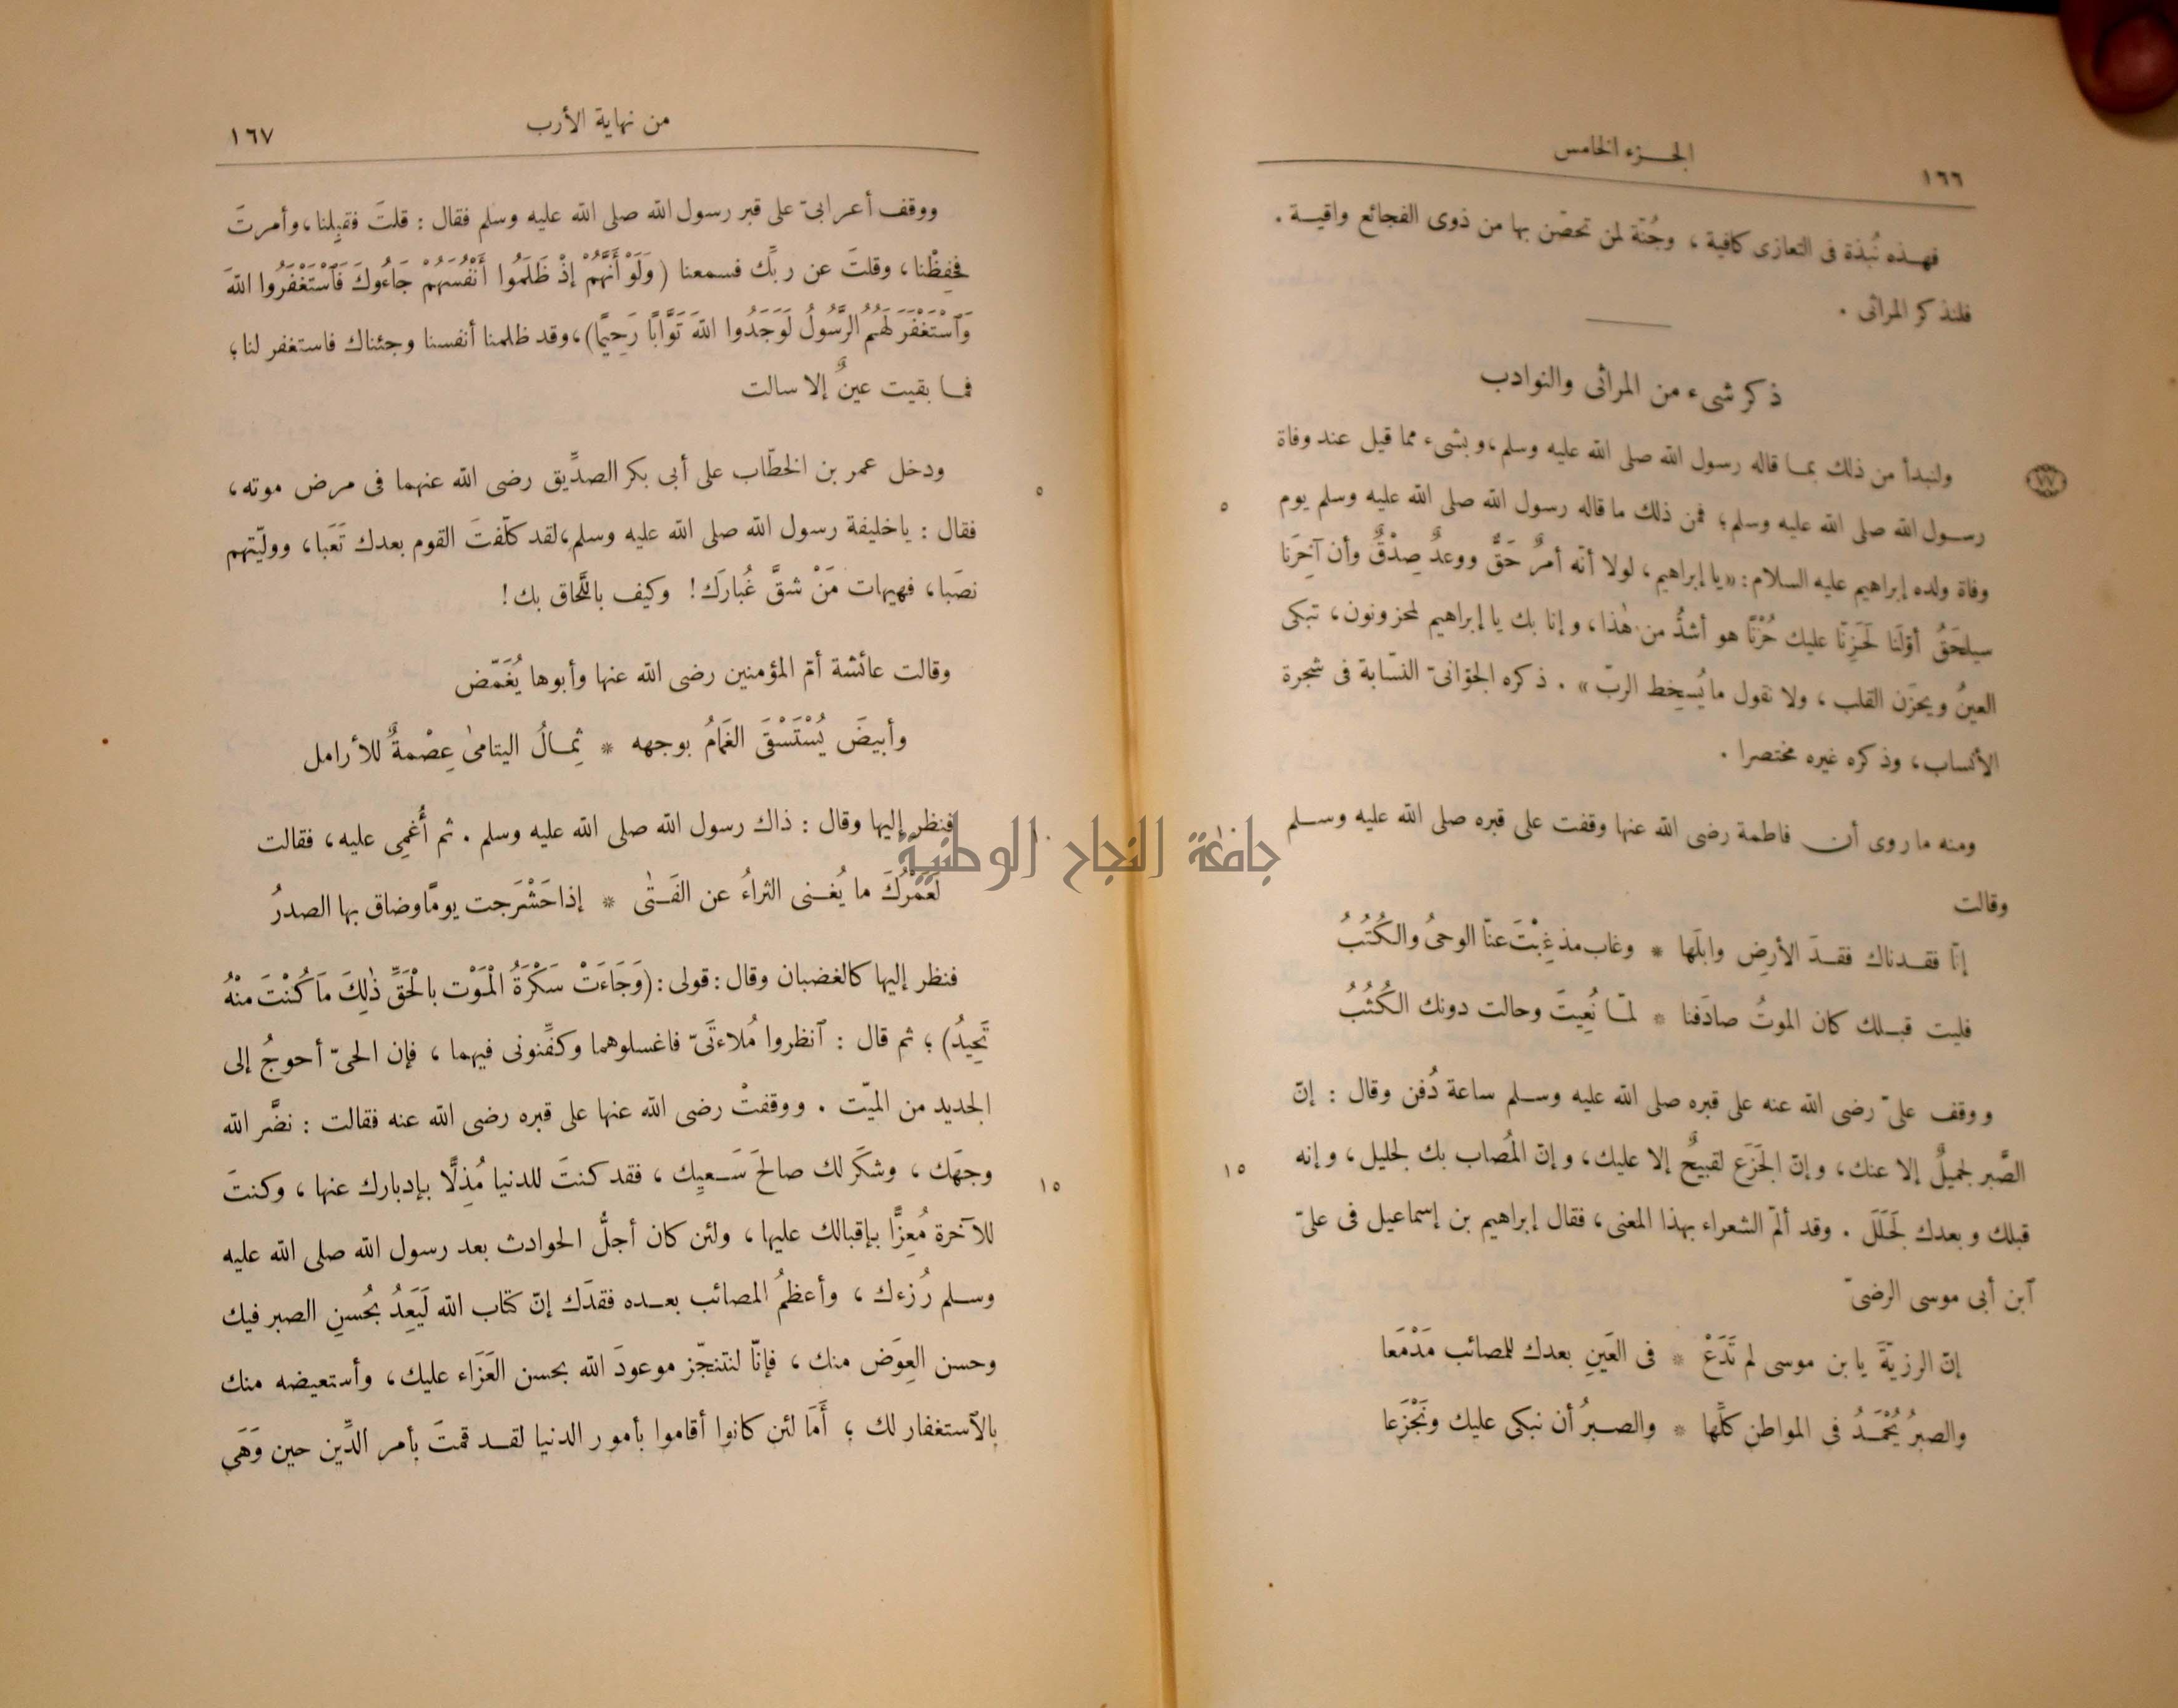 ١٦٦
الجـزء الخامس
فهـذه نُبذة فى التعازى كافية ، وجُنّة لمن تحصّن بها من ذوى الفجائع واقيـة .
فلنذكر المراثى .
ذكر شىء من المراثى والنوادب
ولنبدأ من ذلك بمـا قاله رسول الله صلى الله عليه وسلم ،وبشىء مما قيل عند وفاة
رسـول الله صلى الله عليه وسلم؛ فمن ذلك ما قاله رسول الله صلى الله عليه وسلم يوم
٥
وفاة ولده إبراهيم عليه السلام: «يا إبراهيم، لولا أنّه أمرٌ حَقٌّ ووعدٌ صِدْقٌ وأن آخِرَنا
سيلحَقُ أوّلَنا لَحَزِنّا عليك حُزْنًا هو أشدُّ من هٰذا، وإنا بك يا إبراهيم لمحزونون، تبكى
العينُ ويحزَن القلب ، ولا نقول ما يُسخِط الربّ» . ذكره الجوّانىّ النسّابة فى شجرة
الأنساب، وذكره غيره مختصرا .
ومنه ما روى أن فاطمة رضى الله عنها وقفت على قبره صلى الله عليه وسـلم
وقالت
إنّا فقـدناك فقـدَ الأرضِ وابلَها * وغاب مذ غِبْتَ عنّا الوحىُ والكُتُبُ
فليت قبـلك كان الموتُ صادَفنا * لمّـا نُعِيتَ وحالت دونك الكُثُبُ
ووقف علىّ رضى الله عنه على قبره صلى الله عليه وسـلم ساعة دُفن وقال : إنّ
الصَّبر لجميلٌ إلا عنك، وإنّ الجَزَع لقبيحٌ إلا عليك، وإنّ المُصاب بك لجليل، وإنه
١٥
قبلك وبعدك لَجَلَلَ . وقد ألمّ الشعراء بهذا المعنى، فقال إبراهيم بن إسماعيل فى علىّ
ٱبن أبى موسى الرضىّ
إنّ الرزيّةَ يا بن موسى لم تَدَعْ * فى العَينِ بعدك للمصائب مَدْمَعا
والصبرُ يُحْمَـدُ فى المواطنِ كلِّها * والصـبرُ أن نبكى عليك ونَجْزَعا
من نهاية الأرب
١٦٧
ووقف أعرابىّ على قبر رسول الله صلى الله عليه وسلم فقال : قلتَ فقبِلنا، وأمرتَ
فحَفِظْنا، وقلتَ عن ربِّك فسمعنا (وَلَوْ أَنَّهُمْ إذْ ظَلَمُوا أَنْفُسَهُمْ جَاءُوكَ فَٱسْتَغْفَرُوا اللهَ
وَٱسْتَغْفَرَ لَهُمُ الرَّسُولُ لَوَجَدُوا اللهَ تَوَّابًا رَحِيمًا)، وقد ظلمنا أنفسنا وجئناك فاستغفر لنا؛
فمـا بقيت عينٌ إلا سالت
ودخل عمر بن الخطّاب على أبى بكر الصدِّيق رضى الله عنهما فى مرض موته،
٥
فقال : يا خليفة رسول الله صلى الله عليه وسلم،لقد كلّفتَ القوم بعدك تَعَبا، وولّيتهم
نصَبا، فهيهات مَنْ شقَّ غُبارَك! وكيف باللَّحاق بك!
وقالت عائشة أمّ المؤمنين رضى الله عنها وأبوها يُغَمّض
وأبيضَ يُسْتَسْقَى الغَمَامُ بوجهه * ثِمـالُ اليتامىٰ عِصْمةٌ للأرامل
فنظر إليها وقال : ذاك رسول الله صلى الله عليه وسلم . ثم أُغمِى عليه، فقالت
جامعة النجاح الوطنية
لَعَمْرُكَ ما يُغـنى الثراءُ عن الفَـتٰى * إذا حَشْرَجت يومًا وضاق بها الصدرُ
فنظر إليها كالغضبان وقال: قولى: (وَجَاءَتْ سَكْرَةُ الْمَوْت بالْحَقِّ ذٰلِكَ مَا كُنْتَ مِنْهُ
تَحِيدُ) ؛ ثم قال : ٱنظروا مُلاءتَىّ فاغسلوهما وكفِّنونى فيهما ، فإن الحىّ أحوجُ إلى
الجديد من الميّت . ووقفتْ رضى الله عنها على قبره رضى الله عنه فقالت : نضَّر الله
وجهَك ، وشكَر لك صالحَ سَـعيِك ، فقد كنتَ للدنيا مُذِلًّا بإدبارك عنها ، وكنتَ
١٥
للآخرة مُعِزًّا بإقبالك عليها ، ولئن كان أجلُّ الحوادث بعد رسول الله صلى الله عليه
وسـلم رُزءك ، وأعظمُ المصائب بعـده فقدَك إنّ كتاب الله لَيَعِدُ بحُسنِ الصبر فيك
وحسن العِوَض منك ، فإنّا لنتنجّز موعودَ الله بحسن العَزَاء عليك، وأستعيضه منك
بالٱستغفار لك ؛ أَمَا لئن كانوا أقاموا بأمور الدنيا لقـد قمتَ بأمر الدِّين حين وَهَى